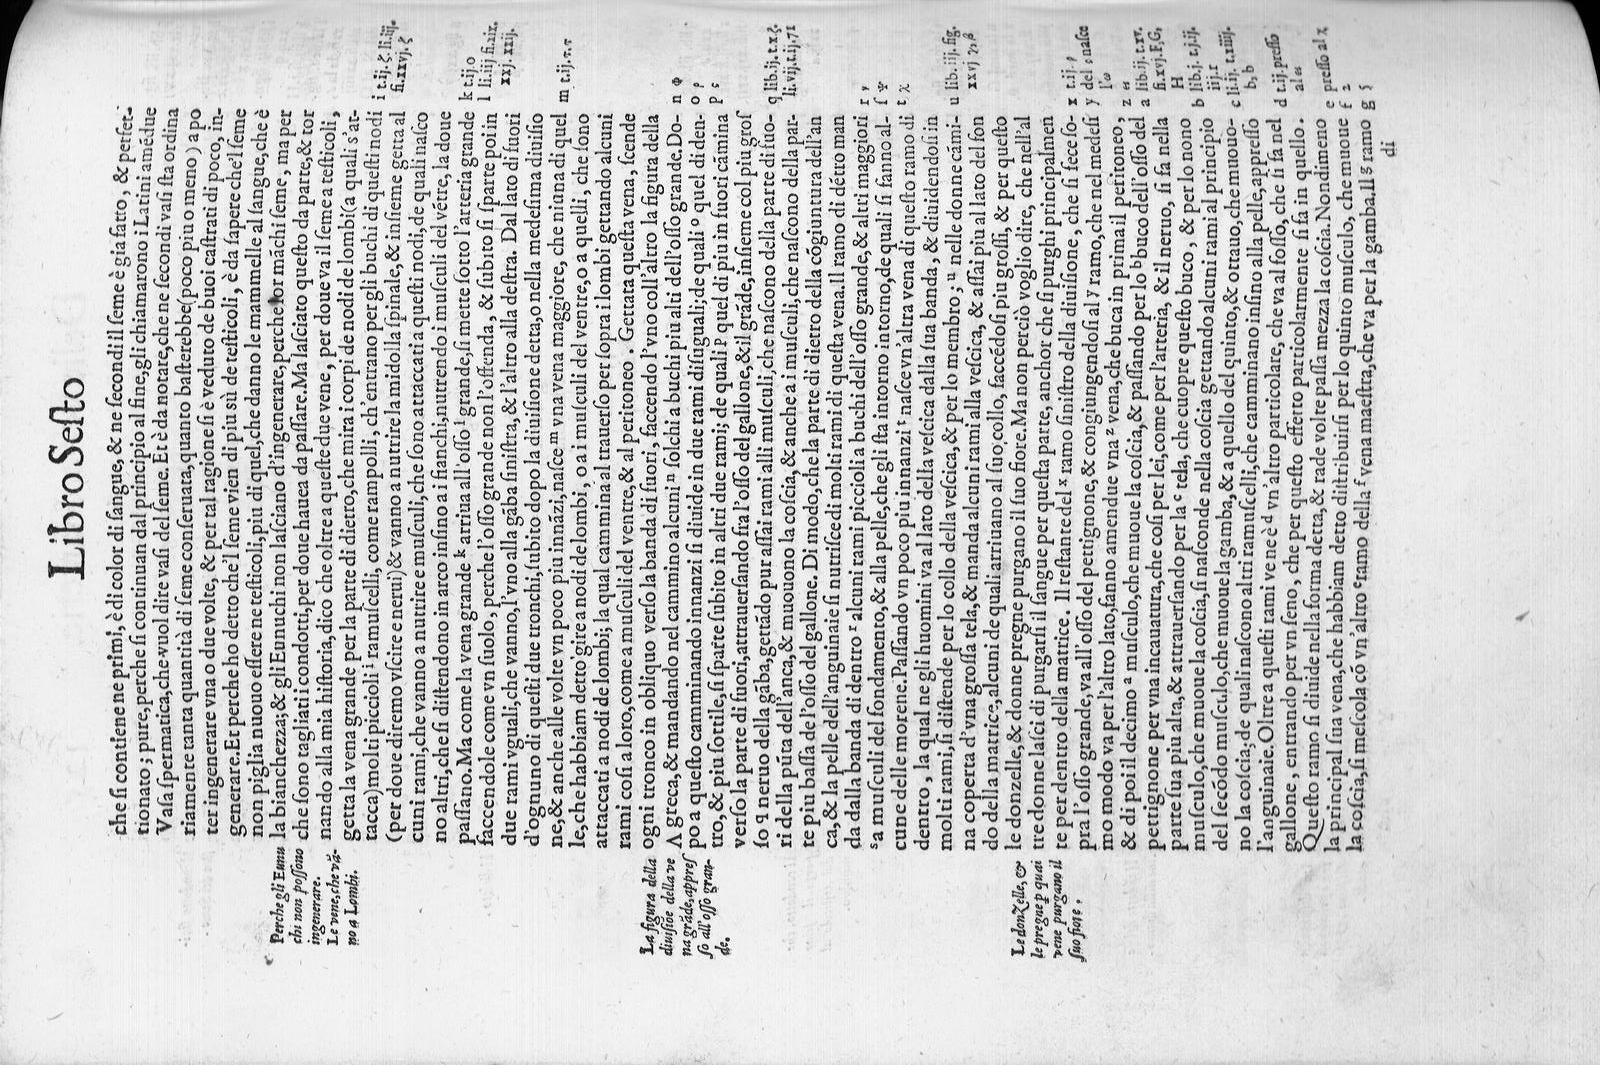 Libro Sesto
che si contiene ne primi, è di color di sangue, & ne secondi il seme è gia fatto, & perfet-
tionato; pure, perche si continuan dal principio al fine, gli chiamarono i Latini amēdue
Vasa spermatica, che vuol dire vasi del seme. Et è da notare, che ne secondi vasi sta ordina
riamente tanta quantità di seme conseruata, quanto basterebbe (poco piu o meno) a po
ter ingenerare vna o due volte, & per tal ragione si è veduto de buoi castrati di poco, in-
generare. Et perche ho detto che'l seme vien di piu sù de testicoli, è da sapere che'l seme
non piglia nuouo essere ne testicoli, piu di quel, che danno le mammelle al sangue, che è
la bianchezza; & gli Eunuchi non lasciano d'ingenerare, perche lor māchi seme, ma per
che sono tagliati i condotti, per doue hauea da passare. Ma lasciato questo da parte, & tor
nando alla mia historia, dico che oltre a queste due vene, per doue va il seme a testicoli,
getta la vena grande per la parte di dietro, che mira i corpi de nodi de lombi (a quali s'at-
tacca) molti piccioli i ramuscelli, come rampolli, ch'entrano per gli buchi di questi nodi
(per doue diremo vscire e nerui) & vanno a nutrire la midolla spinale, & insieme getta al
cuni rami, che vanno a nutrire e musculi, che sono attaccati a questi nodi, de quali nasco
no altri, che si distendono in arco insino a i fianchi, nutrendo i musculi del vētre, la doue
passano. Ma come la vena grande k arriua all'osso l grande, si mette sotto l'arteria grande
faccendole come vn suolo, perche l'osso grande non l'offenda, & subito si sparte poi in
due rami vguali, che vanno, l'vno alla gāba sinistra, & l'altro alla destra. Dal lato di fuori
d'ognuno di questi due tronchi, subito dopo la diuisione detta, o nella medesima diuisio
ne, & anche alle volte vn poco piu innāzi, nasce m vna vena maggiore, che niuna di quel
le, che habbiam detto gire a nodi de lombi, o a i musculi del ventre, o a quelli, che sono
attaccati a nodi de lombi; la qual camina al trauerso per sopra i lombi gettando alcuni
rami cosi a loro, come a musculi del ventre, & al peritoneo. Gettata questa vena, scende
ogni tronco in obliquo verso la banda di fuori, faccendo l'vno coll'altro la figura della
Λ greca, & mandando nel cammino alcuni n solchi a buchi piu alti dell'osso grande. Do-
po a questo camminando innanzi si diuide in due rami disuguali; de quali o quel di den-
tro, & piu sottile, si sparte subito in altri due rami; de quali p quel di piu in fuori cāmina
verso la parte di fuori, attrauersando fra l'osso del gallone, & il grāde, insieme col piu gros
so q neruo della gāba, gettādo pur assai rami alli musculi, che nascono della parte di fuo-
ri della pūta dell'anca, & muouono la coscia, & anche a i musculi, che nascono della par-
te piu bassa de l'osso del gallone. Di modo, che la parte di dietro della cōgiuntura dell'an
ca, & la pelle dell'anguinaie si nutrisce di molti rami di questa vena. Il ramo di dētro man
da dalla banda di dentro r alcuni rami piccioli a buchi dell'osso grande, & altri maggiori
s a musculi del fondamento, & alla pelle, che gli sta intorno intorno, de quali si fanno al-
cune delle morene. Passando vn poco piu innanzi t nasce vn'altra vena di questo ramo di
dentro, la qual ne gli huomini va al lato della vescica dalla sua banda, & diuidendosi in
molti rami, si distende per lo collo della vescica, & per lo membro; u nelle donne cāmi-
na coperta d'vna grossa tela, & manda alcuni rami alla vescica, & assai piu al lato del fon
do della matrice, alcuni de quali arriuano al suo collo, faccēdosi piu grossi, & per questo
le donzelle, & donne pregne purgano il suo fiore. Ma non perciò voglio dire, che nell'al
tre donne lasci di purgarsi il sangue per questa parte, anchor che si purghi principalmen
te per dentro della matrice. Il restante del x ramo sinistro della diuisione, che si fece so-
pra l'osso grande, va all'osso del pettignone, & congiungendosi al y ramo, che nel medesi
mo modo va per l'altro lato, fanno amendue vna z vena, che buca in prima il peritoneo,
& di poi il decimo a musculo, che muoue la coscia, & passando per lo b buco dell'osso del
pettignone per vna incauatura, che cosi per lei, come per l'arteria, & il neruo, si fa nella
parte sua piu alta, & attrauersando per la c tela, che cuopre questo buco, & per lo nono
musculo, che muoue la coscia, si nasconde nella coscia gettando alcuni rami al principio
del secōdo musculo, che muoue la gamba, & a quello del quinto, & ottauo, che muouo-
no la coscia; de quali nascono altri ramuscelli, che camminano insino alla pelle, appresso
l'anguinaie. Oltre a questi rami ve ne è d vn'altro particolare, che va al fosso, che si fa nel
gallone, entrando per vn seno, che per questo effetto particolarmente si fa in quello.
Questo ramo si diuide nella forma detta, & rade volte passa mezza la coscia. Nondimeno
la principal sua vena, che habbiam detto distribuirsi per lo quinto musculo, che muoue
la coscia, si mescola cō vn'altro e ramo della f vena maestra, che va per la gamba. Il g ramo
di
Perche gli Eunu
chi non possono
ingenerare.
Le vene, che vā-
no a Lombi.
La figura della
diuisiōe della ve
na grāde, appres
so all'osso gran-
de.
Le donzelle, &
le pregne p quai
vene purgano il
suo fiore.
i t.ij. ζ. li. iij.
fi. xxvj. ζ
k t.ij. o
l li. iij fi. xix.
xxj. xxij.
m t.ij. τ. τ
n Φ
o ρ
p ς
q lib. ij. t. x ζ.
li. vij. t. ij. 71
r y
s Ψ
t χ
u lib. iij. fig.
xxvj γ, β
x t. ij. ρ
y del ς nasce
l'ω
z
a lib. ij. t. xv.
fi. xvj. F, G,
H
b lib. j. t. j. ij.
iij. r
c li. ij. t. xiiij.
b, b
d t. ij. presso
al
e presso al χ
f 2
g §